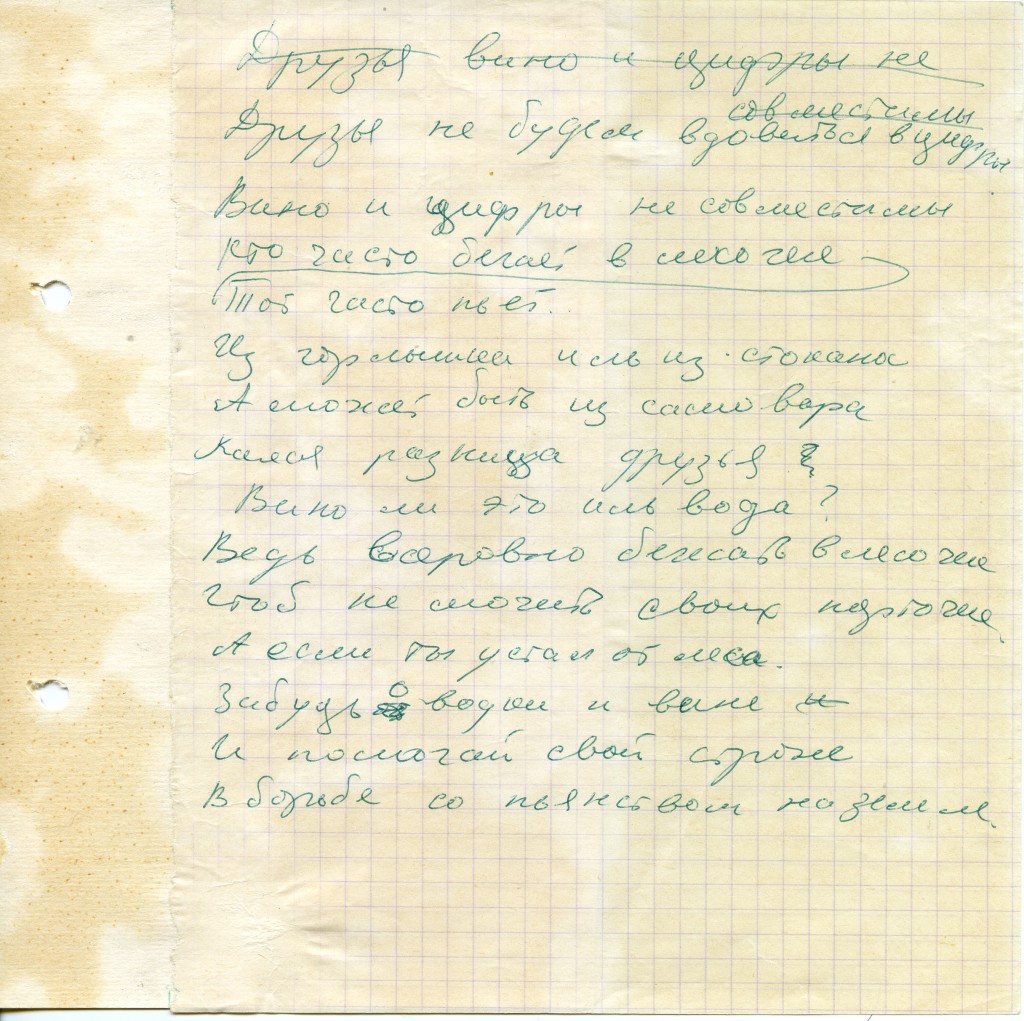 Друзья вино и цифры не
совместимы
Друзья не будем вдоваться в цифры
Вино и цифры не совместимы
Кто часто бегает в лесочек
Тот часто пьет..
Из горлышка иль из стокана
А может быть из самовара
Какая разница друзья
Вино ли это иль вода?
Ведь всеровно бежать в лесочек
Чтоб не мочить своих порточек.
А если ты устал от леса.
Забудь о водки и вине и
И помогай свой строке
В борьбе со пьянством на земле.